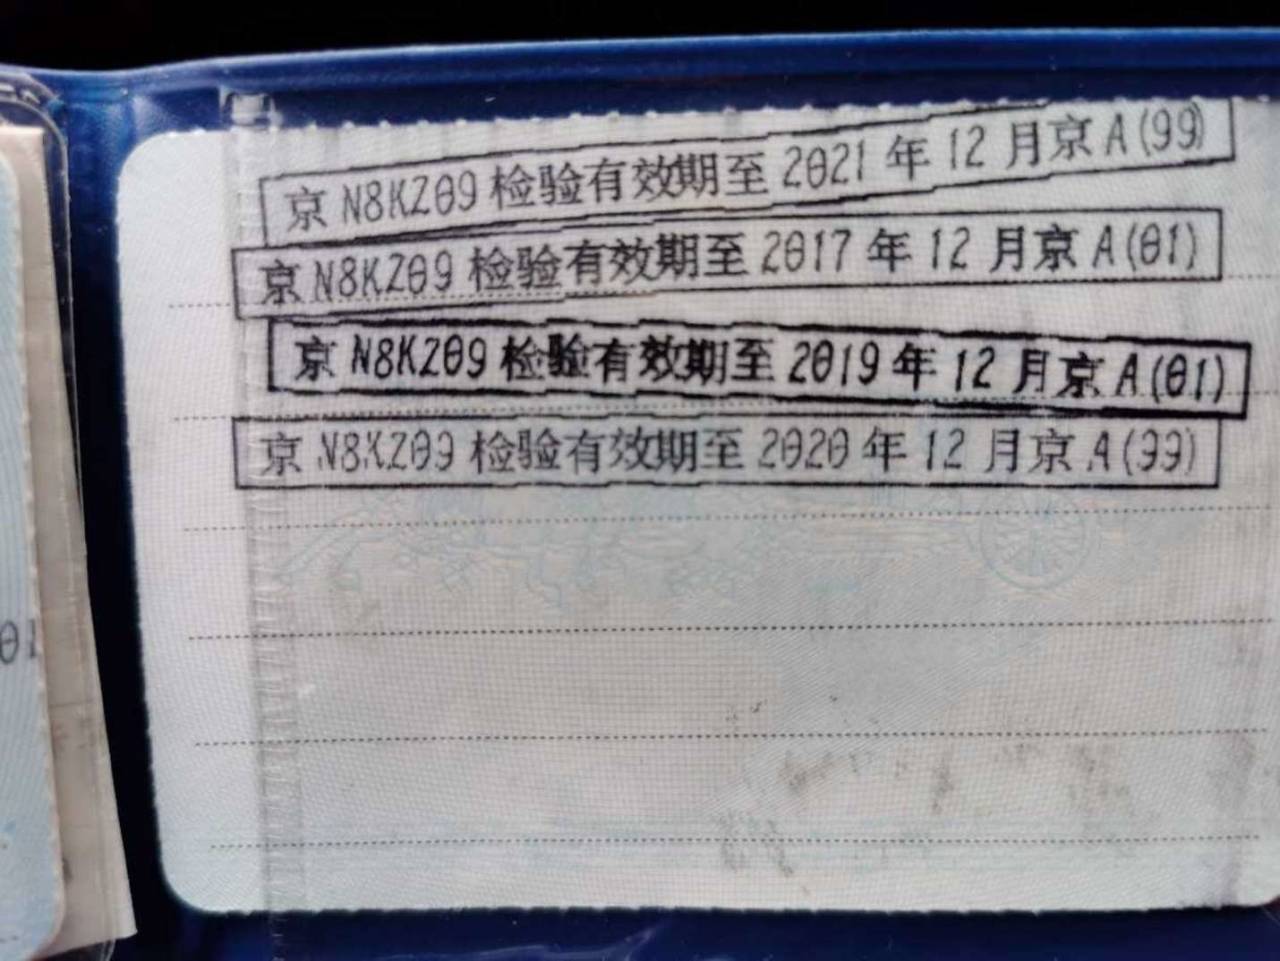 京 N8KZ09 检验有效期至 2021 年 12 月京 A(99)
京 N8KZ09 检验有效期至 2017 年 12 月京 A(01)
京 N8KZ09 检验有效期至 2019 年 12 月京 A(01)
京 N8KZ09 检验有效期至 2020 年 12 月京 A(99)
01